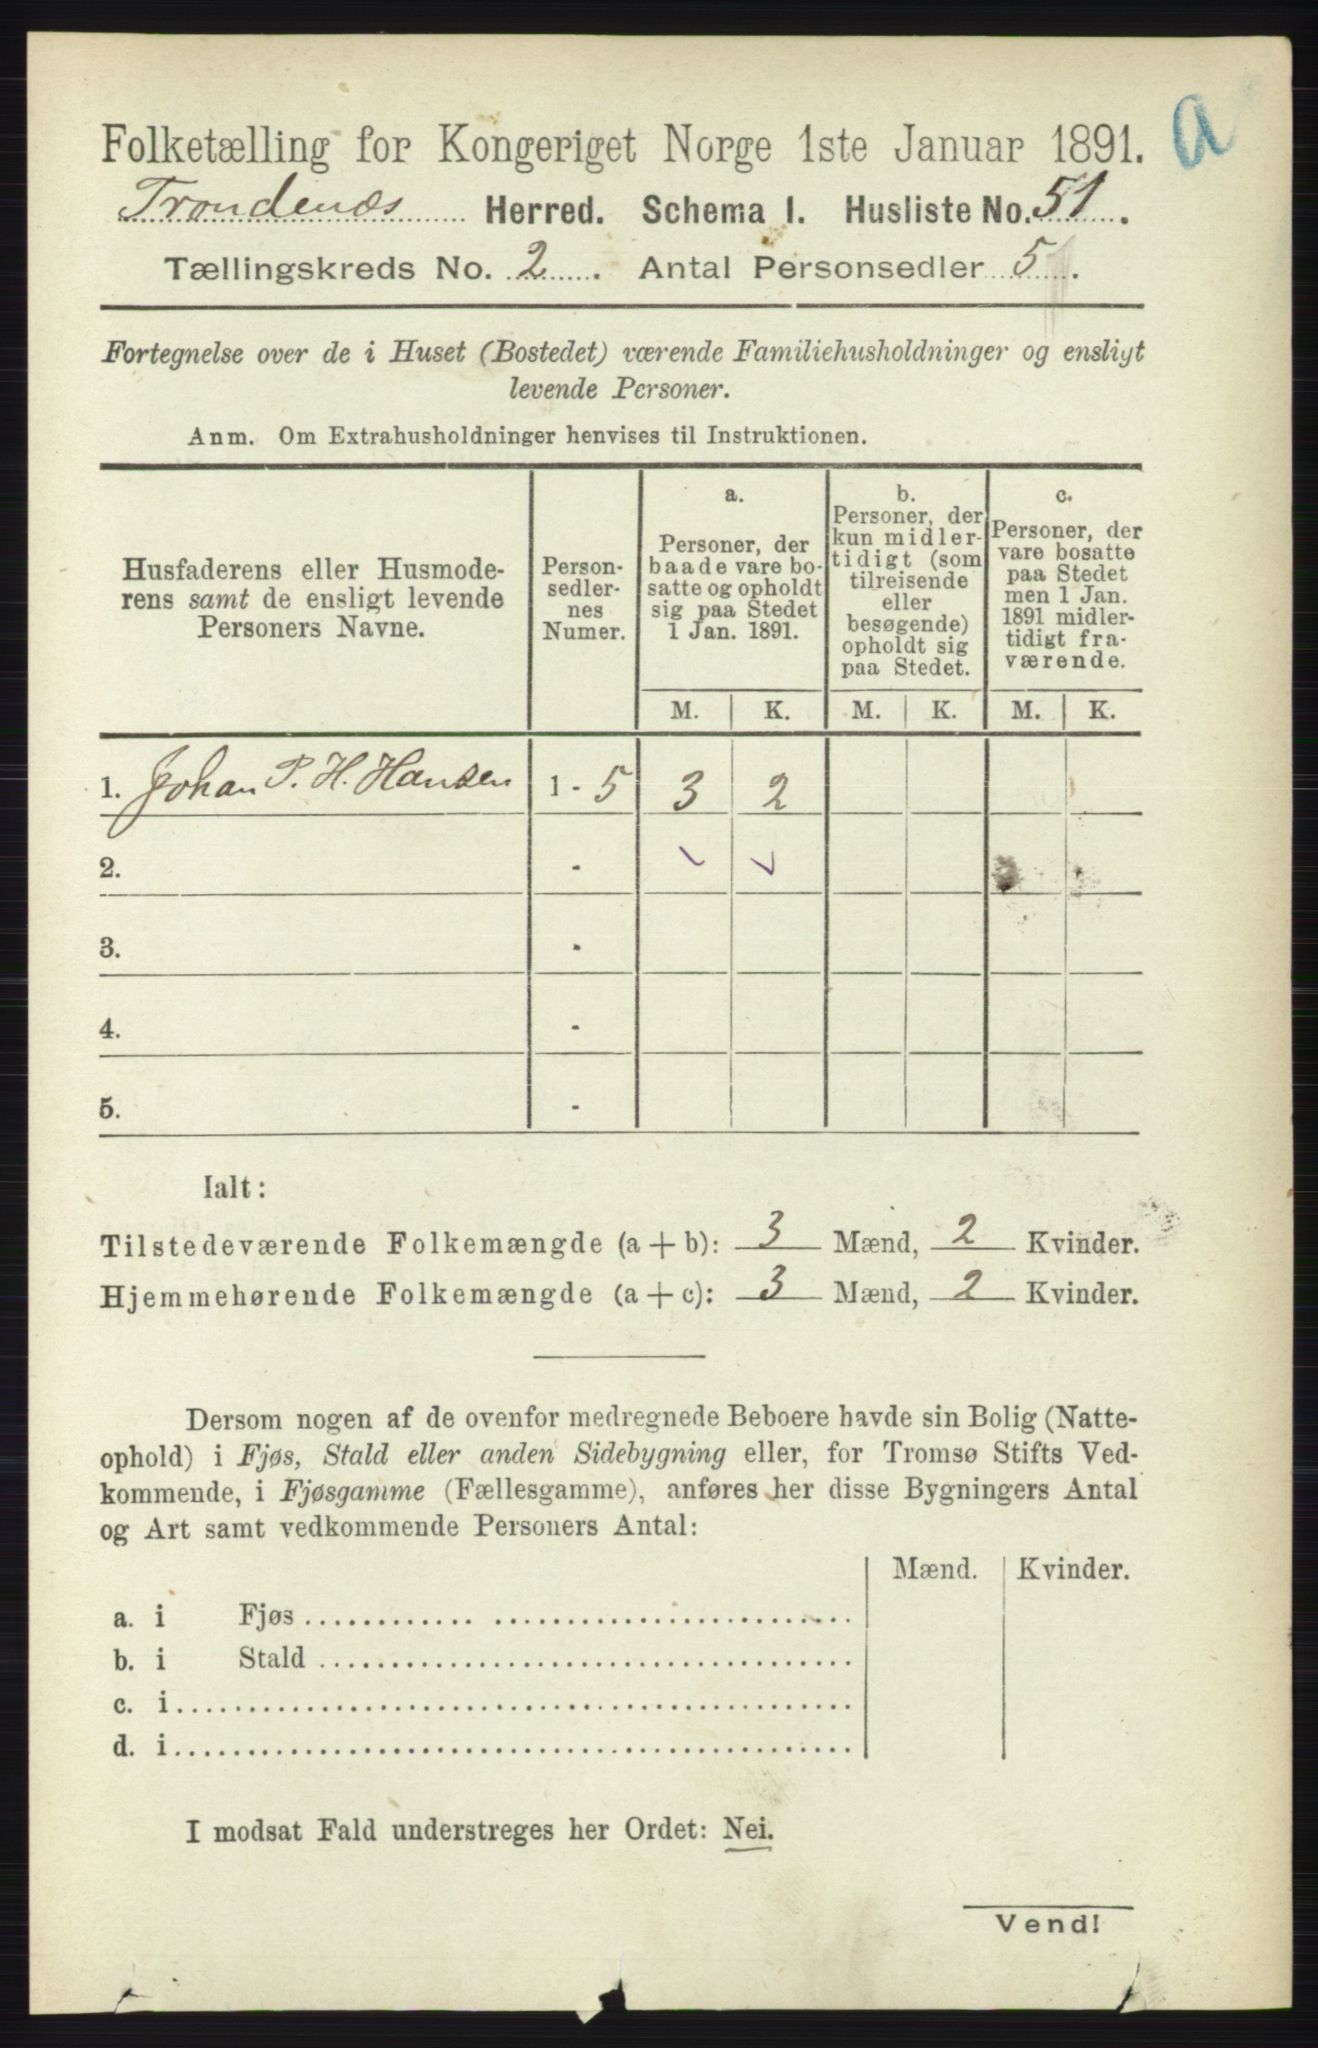 a
Folketælling for Kongeriget Norge 1ste Januar 1891.
Trondenæs Herred. Schema I. Husliste No. 51.
Tællingskreds No. 2. Antal Personsedler 5.
Fortegnelse over de i Huset (Bostedet) værende Familiehusholdninger og ensligt
levende Personer.
Anm. Om Extrahusholdninger henvises til Instruktionen.
Husfaderens eller Husmode-
rens samt de ensligt levende
Personers Navne.
Person-
sedler-
nes
Numer.
a.
Personer, der
baade vare bo-
satte og opholdt
sig paa Stedet
1 Jan. 1891.
b.
Personer, der
kun midler-
tidigt (som
tilreisende
eller
besøgende)
opholdt sig
paa Stedet.
c.
Personer, der
vare bosatte
paa Stedet
men 1 Jan.
1891 midler-
tidigt fra-
værende.
M. K. M. K. M. K.
1. Johan P. H. Hansen 1 - 5 3 2
2. -
3. -
4. -
5. -
Ialt:
Tilstedeværende Folkemængde (a + b): 3 Mænd, 2 Kvinder.
Hjemmehørende Folkemængde (a + c): 3 Mænd, 2 Kvinder.
Dersom nogen af de ovenfor medregnede Beboere havde sin Bolig (Natte-
ophold) i Fjøs, Stald eller anden Sidebygning eller, for Tromsø Stifts Ved-
kommende, i Fjøsgamme (Fællesgamme), anføres her disse Bygningers Antal
og Art samt vedkommende Personers Antal:
Mænd. Kvinder.
a. i Fjøs
b. i Stald
c. i
d. i
I modsat Fald understreges her Ordet: Nei.
Vend!